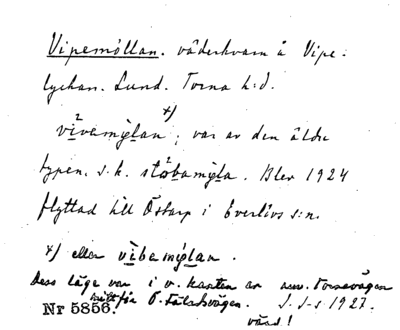 Vipemöllan. väderkvarn å Vipe-
lyckan. Lund. Torna h:d.
x)
vìvemy̨lan; var av den äldre
typen, s.k. stóbamy̨la. Blev 1924
flyttad till Östarp i Everlövs s:n.
x) eller vìbemy̨lan.
Dess läge var i v. kanten av nuv. Tornavägen
mitt för Ö. Vallvägen. I. I-s 1927.
Nr 5856.